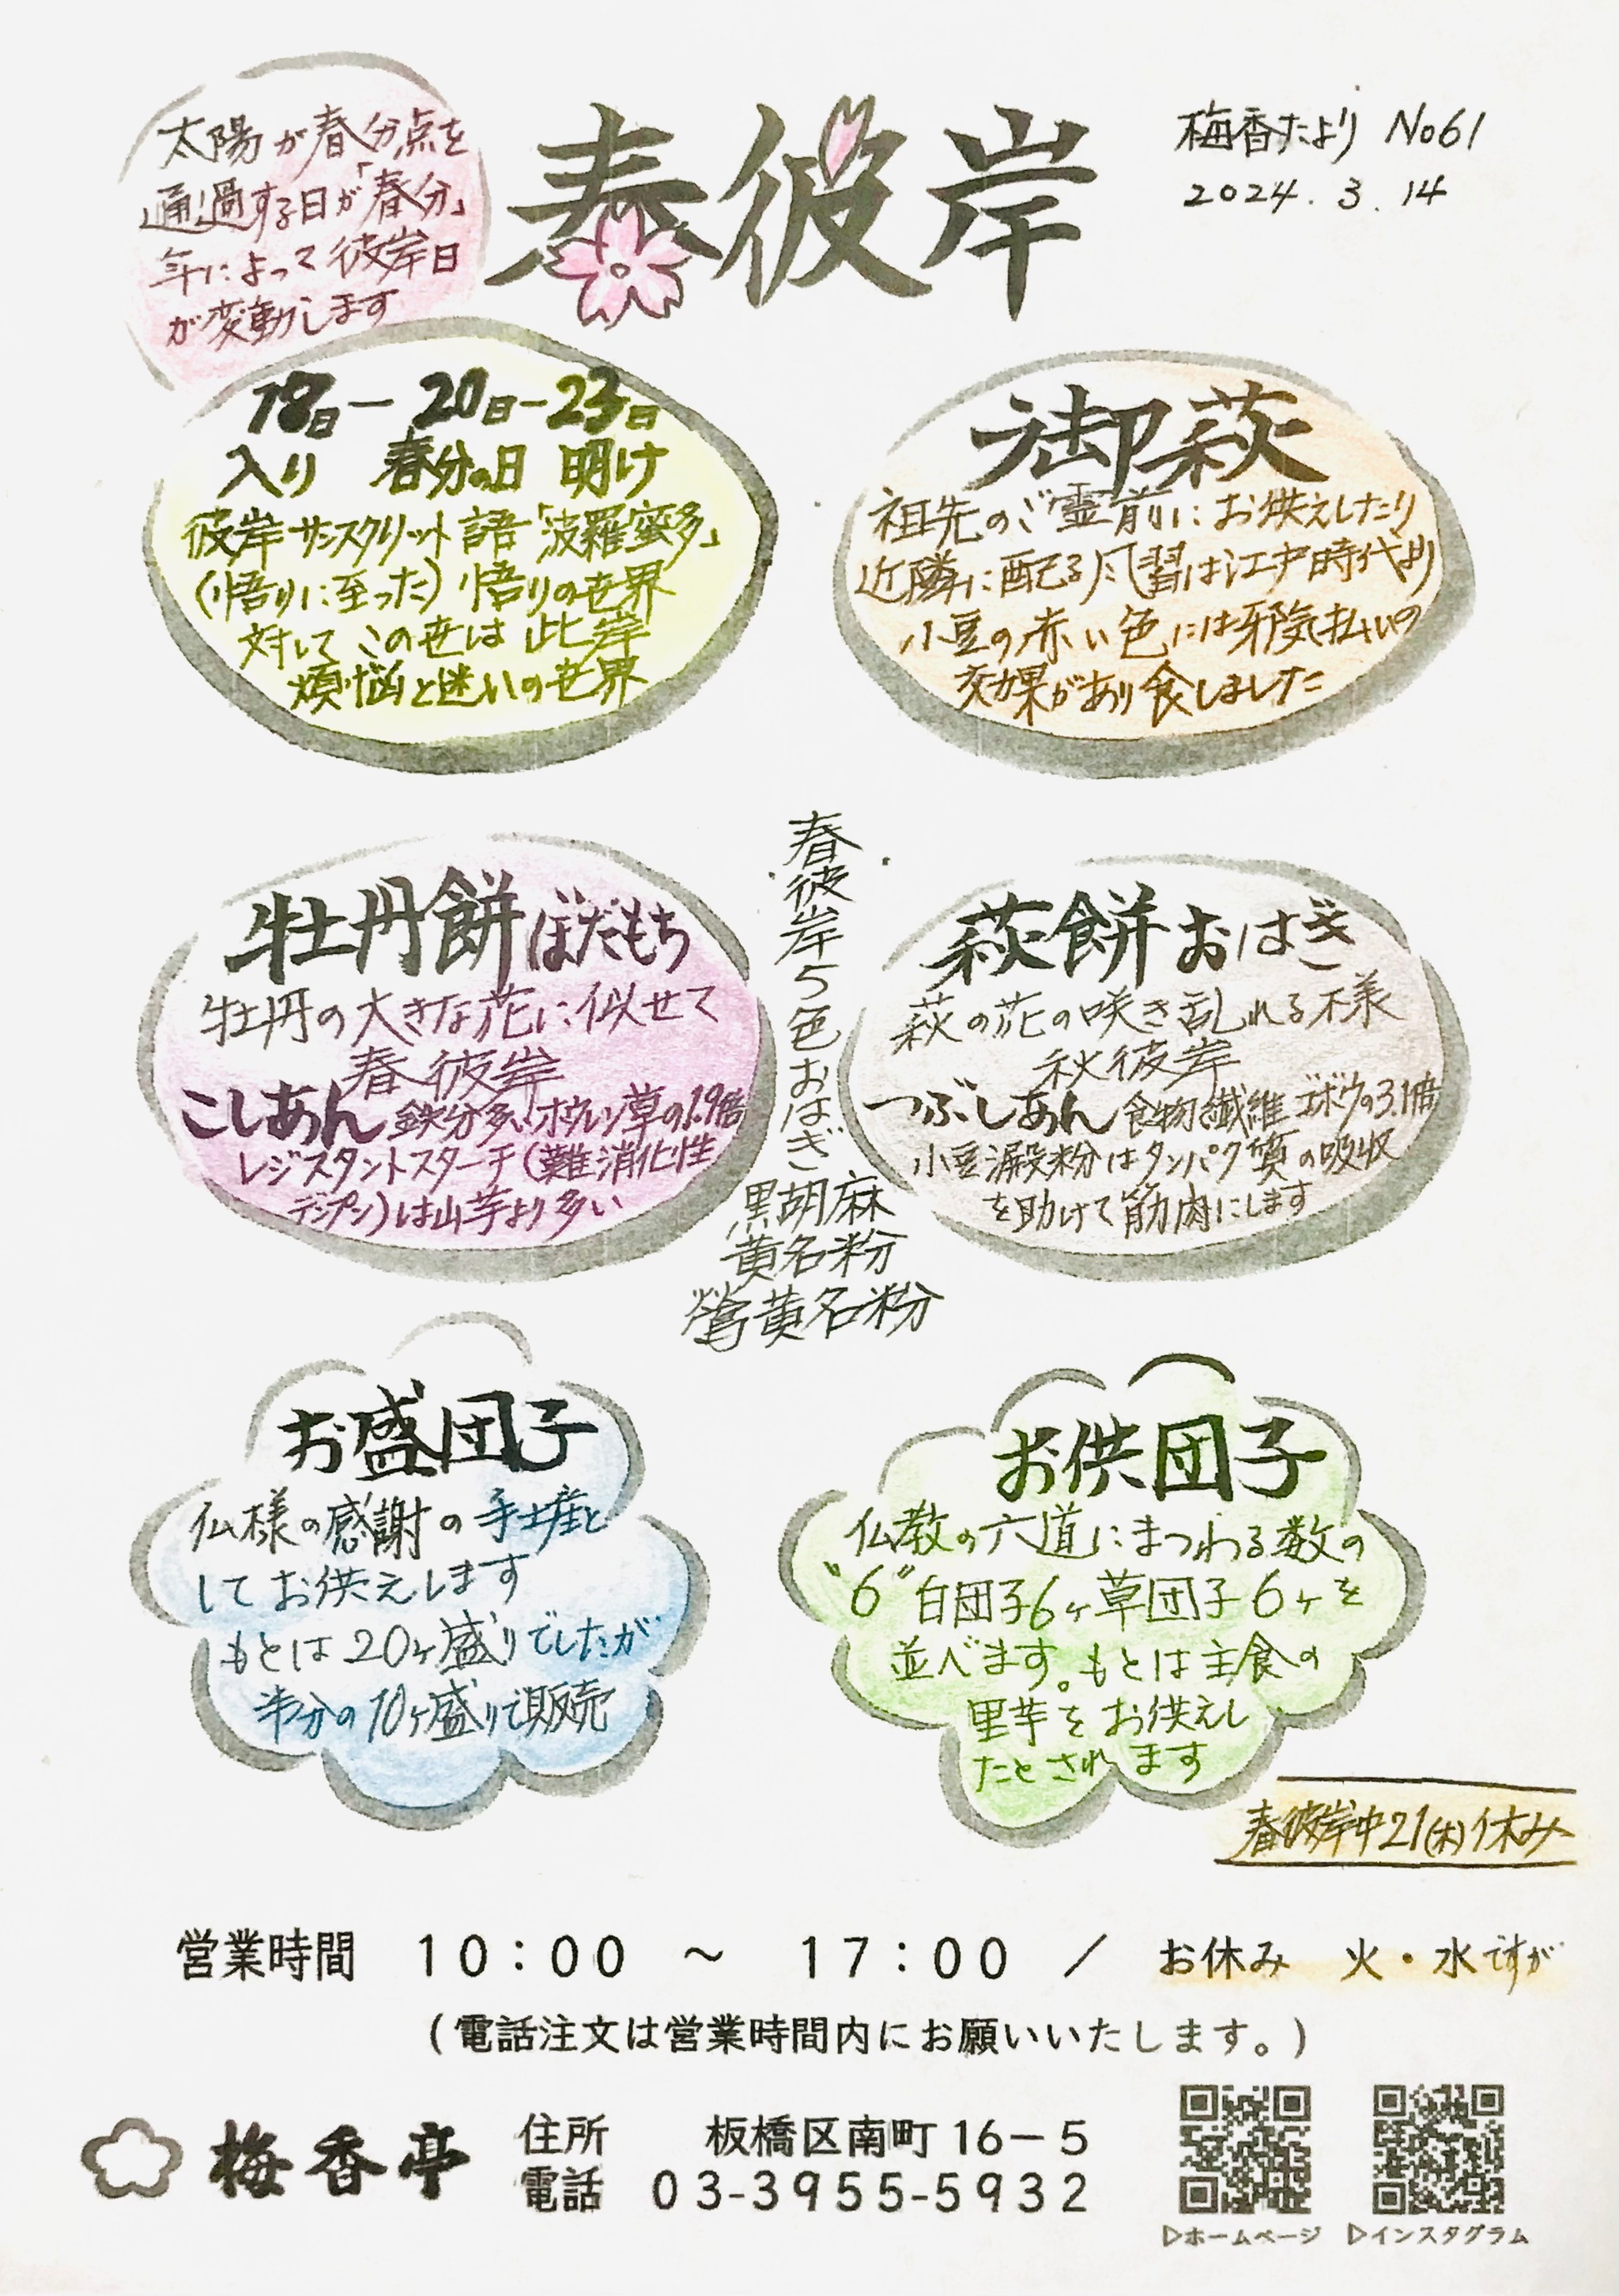 梅香だより No61
2024. 3. 14
春彼岸
太陽が春分点を
通過する日が「春分」
年によって彼岸日
が変動します
18日ー20日ー23日
入り 春分の日 明け
彼岸サンスクリット語「波羅蜜多」
(悟りに至った)悟りの世界
対して この世は 此岸
煩悩と迷いの世界
御萩
祖先のご霊前に お供えしたり
近隣に配る風習は江戸時代より
小豆の赤い色には邪気払いの
効果があり食しました
牡丹餅 ぼたもち
牡丹の大きな花に似せて
春彼岸
こしあん 鉄分多い ホウレン草の1.9倍
レジスタントスターチ(難消化性
デンプン)は山芋より多い
春彼岸5色おはぎ
黒胡麻
黄名粉
鶯黄名粉
萩餅 おはぎ
萩の花の咲き乱れる様
秋彼岸
つぶしあん 食物繊維 ゴボウの3.1倍
小豆澱粉はタンパク質の吸収
を助けて筋肉にします
お盛団子
仏様の感謝の手土産と
してお供えします
もとは20ヶ盛りでしたが
半分の10ヶ盛りで販売
お供団子
仏教の六道にまつわる数の
“6”白団子6ヶ草団子6ヶを
並べます。もとは主食の
里芋をお供えし
たとされます
春彼岸中21(木)休み
営業時間 10:00 ～ 17:00 ／ お休み 火・水ですが
(電話注文は営業時間内にお願いいたします。)
梅香亭
住所 板橋区南町16－5
電話 03-3955-5932
▷ホームページ ▷インスタグラム